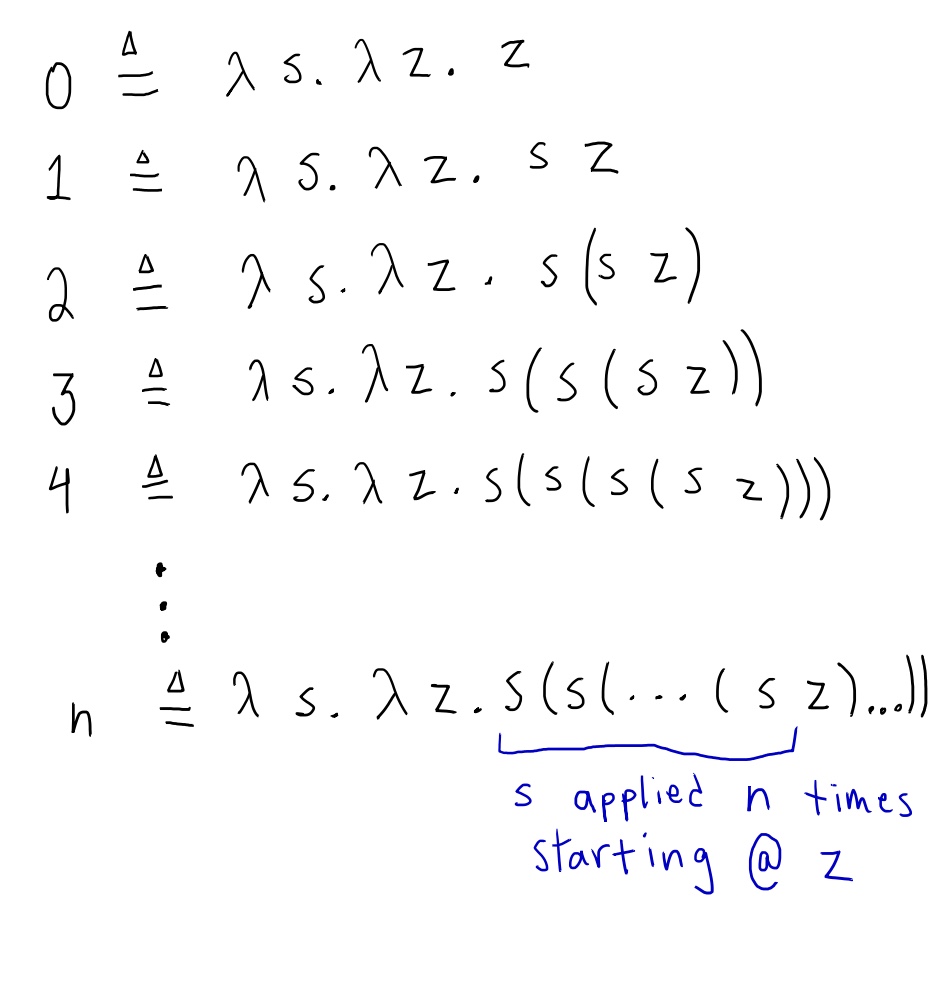 0 ≜ λ s. λ z. z
1 ≜ λ s. λ z. s z
2 ≜ λ s. λ z. s(s z)
3 ≜ λ s. λ z. s(s(s z))
4 ≜ λ s. λ z. s(s(s(s z)))
⋮
n ≜ λ s. λ z. s(s(...(s z)...))
s applied n times
starting @ z